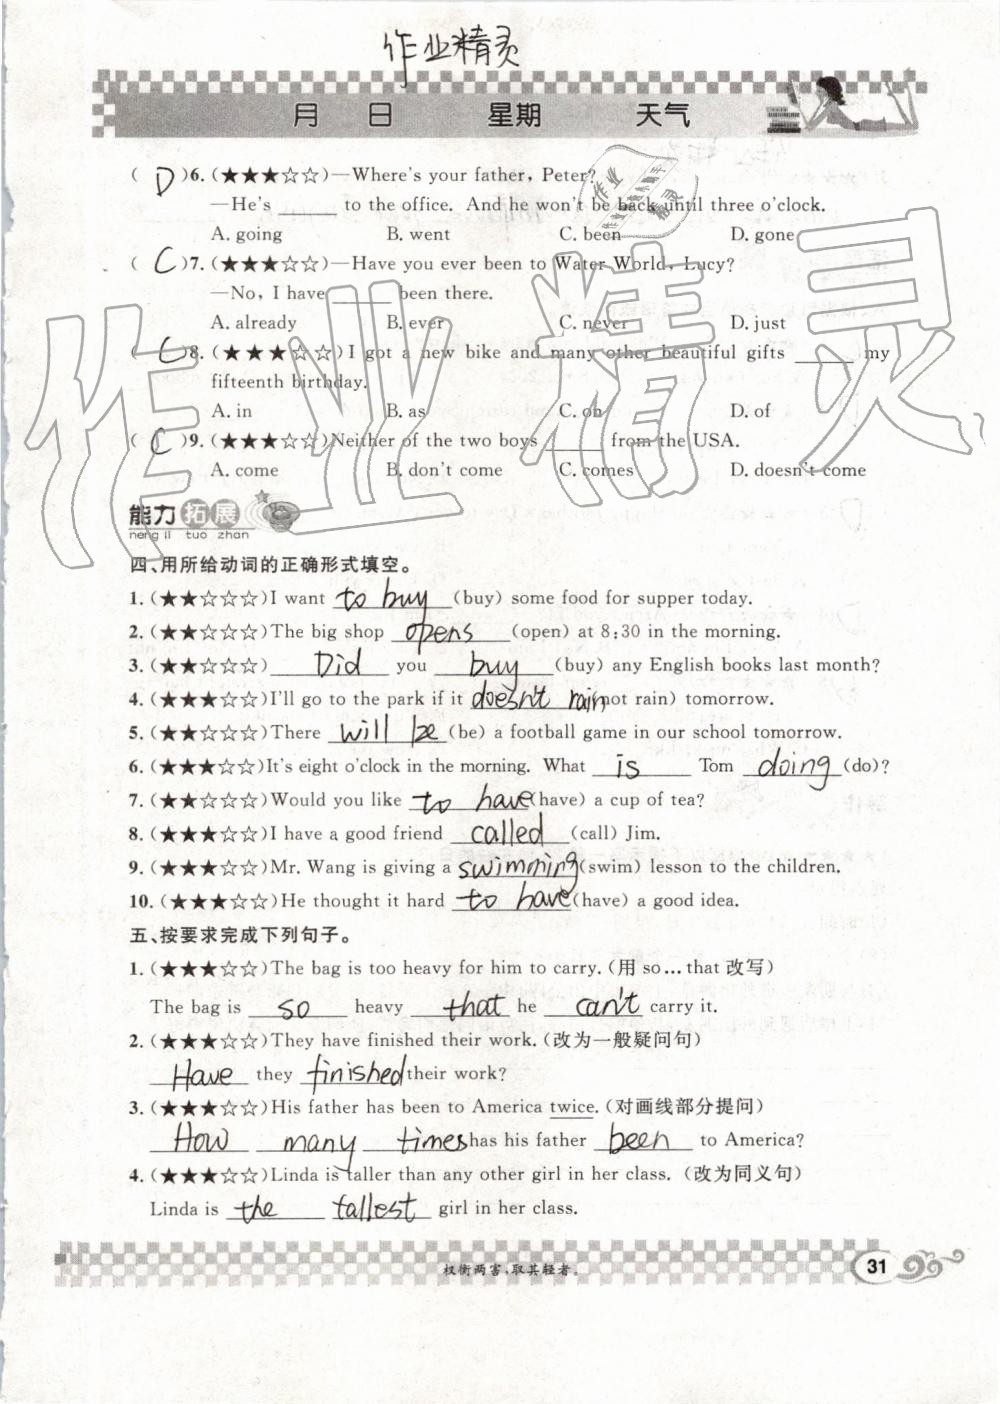 作业精灵
月 日 星期 天气
( D )6. (★★★☆☆)—Where's your father, Peter?
—He's ______ to the office. And he won't be back until three o'clock.
A. going B. went C. been D. gone
( C )7. (★★★☆☆)—Have you ever been to Water World, Lucy?
—No, I have ______ been there.
A. already B. ever C. never D. just
( C )8. (★★★☆☆)I got a new bike and many other beautiful gifts ______ my
fifteenth birthday.
A. in B. as C. on D. of
( C )9. (★★★☆☆)Neither of the two boys ______ from the USA.
A. come B. don't come C. comes D. doesn't come
能力拓展
neng li tuo zhan
四、用所给动词的正确形式填空。
1. (★★☆☆☆)I want to buy (buy) some food for supper today.
2. (★★☆☆☆)The big shop opens (open) at 8:30 in the morning.
3. (★★☆☆☆) Did you buy (buy) any English books last month?
4. (★★☆☆☆)I'll go to the park if it doesn't rain (not rain) tomorrow.
5. (★★☆☆☆)There will be (be) a football game in our school tomorrow.
6. (★★★☆☆)It's eight o'clock in the morning. What is Tom doing (do)?
7. (★★☆☆☆)Would you like to have (have) a cup of tea?
8. (★★★☆☆)I have a good friend called (call) Jim.
9. (★★★☆☆)Mr. Wang is giving a swimming (swim) lesson to the children.
10. (★★★☆☆)He thought it hard to have (have) a good idea.
五、按要求完成下列句子。
1. (★★★☆☆)The bag is too heavy for him to carry. (用 so…that 改写)
The bag is so heavy that he can't carry it.
2. (★★★☆☆)They have finished their work. (改为一般疑问句)
Have they finished their work?
3. (★★★☆☆)His father has been to America twice. (对画线部分提问)
How many times has his father been to America?
4. (★★★☆☆)Linda is taller than any other girl in her class. (改为同义句)
Linda is the tallest girl in her class.
权衡两害,取其轻者。
31
作业精灵